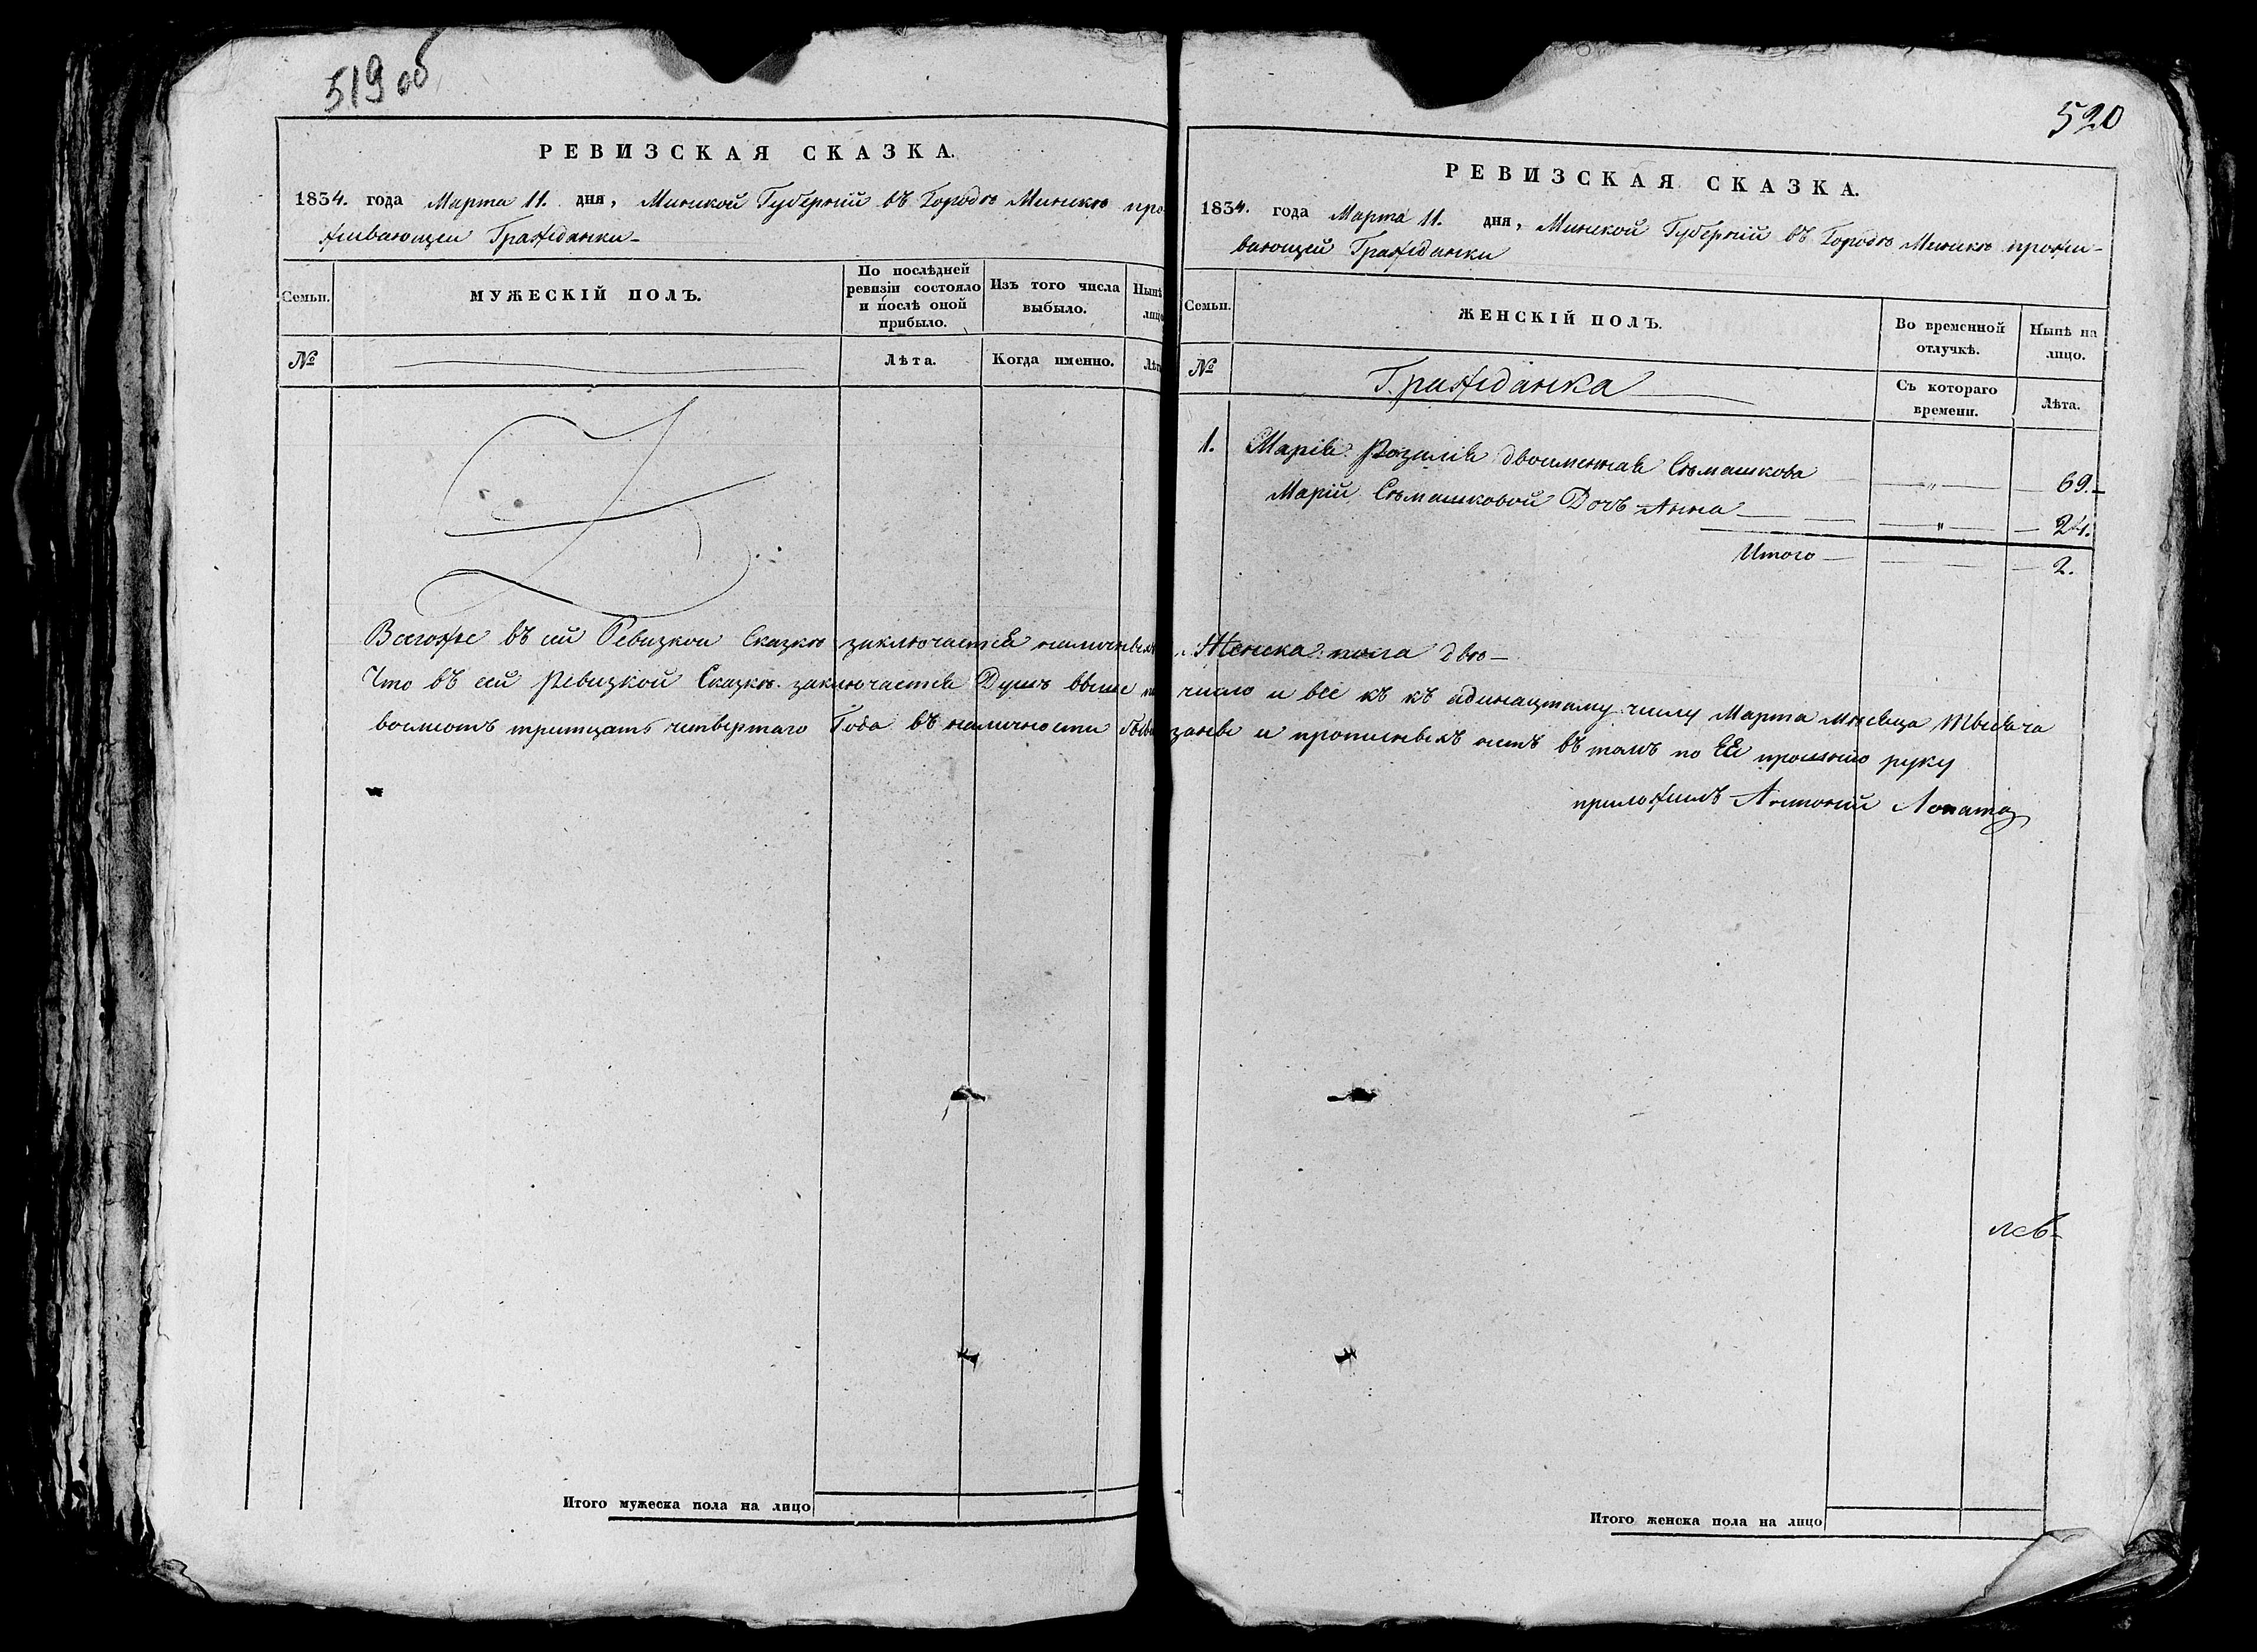 519 об
РЕВИЗСКАЯ СКАЗКА.
1834. года Марта 11. дня, Минской Губерніи въ Городѣ Минскѣ про
живающей Гражданки
Семьи.
МУЖЕСКІЙ ПОЛЪ.
По послѣдней ревизіи состояло и послѣ оной прибыло.
Изъ того числа выбыло.
Нынѣ
лицо
№
Лѣта.
Когда именно.
Лѣт
Всегоже въ сей Ревизкои Сказкѣ заключается наличныхъ
Что въ сей Ревизкой Сказкѣ заключается Душъ выше
восмсотъ тритцать четвертаго Года въ наличности
Итого мужеска пола на лицо
520
РЕВИЗСКАЯ СКАЗКА.
1834. года Марта 11. дня, Минской Губерніи въ Городѣ Минскѣ прожи-
вающей Гражданки
Семьи.
ЖЕНСКІЙ ПОЛЪ.
Во временной отлучкѣ.
Нынѣ на лицо.
№
Гражданка
Съ котораго времени.
Лѣта.
1. Марія Розалія двоименная Сѣмашкова — " — 69.
Маріи Сѣмашковой Дочь Анна — " — 24.
Итого — 2.
Женска пола двѣ
число и все къ къ адинацтому числу Марта мѣсяца тысяча
и прописныхъ нетъ въ томъ по ЕЯ прошѣнію руку
приложилъ Антоній Лопата
Итого женска пола на лицо